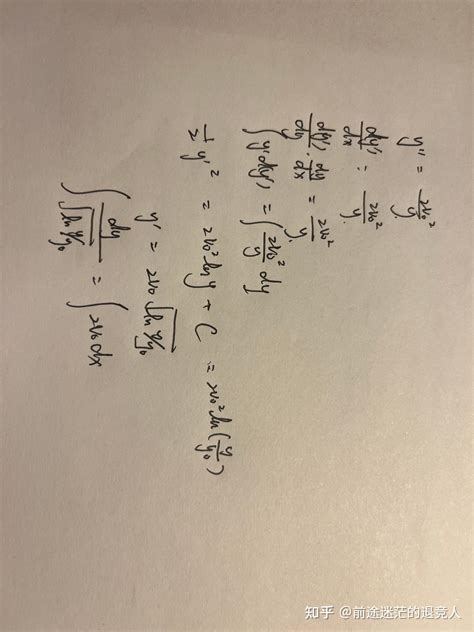 y'' = 2v₀²/y
dy'/dx = 2v₀²/y
dy'/dy · dy/dx = 2v₀²/y
∫ y'dy' = ∫ 2v₀²/y dy
1/2 y'² = 2v₀² ln y + C = 2v₀² ln(y/y₀)
y' = 2v₀ √(ln y/y₀)
∫ dy/√(ln y/y₀) = ∫ 2v₀ dx
知乎 @前途迷茫的退竞人